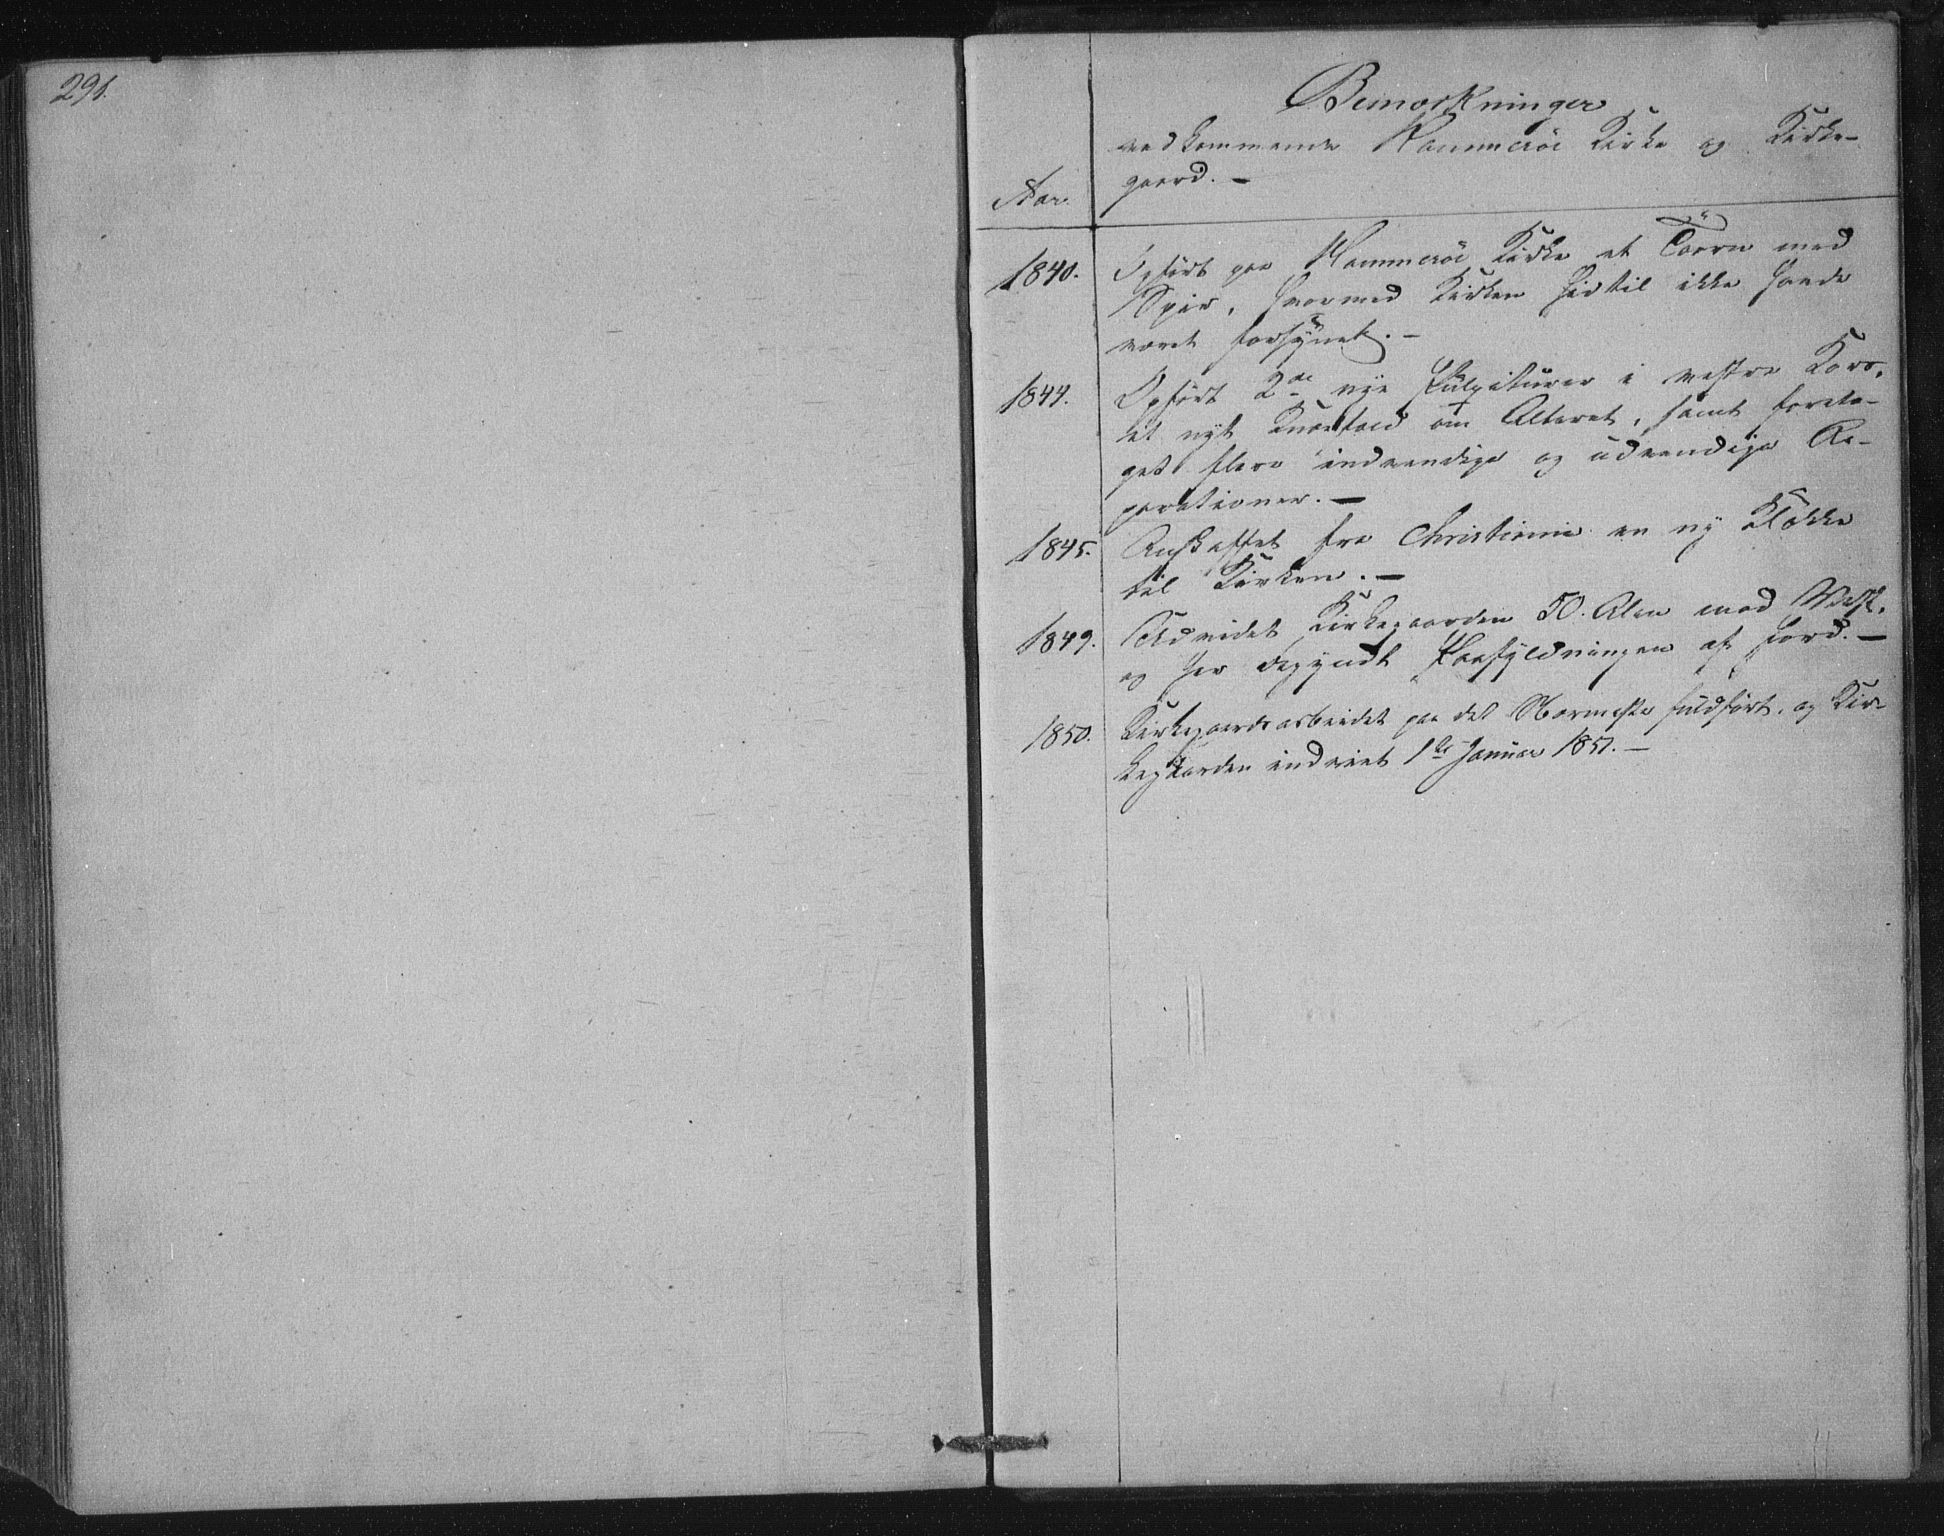 291.
Bemærkninger
vedkommende Hammerøe Kirke og Kirke-
gaard. –
Aar.
1840. Opført paa Hammerøe Kirke et Taarn med
Spir, hvormed Kirken hidtil ikke havde
været forsynet. –
1844. Opført 2de nye Pulpiturer i vestre Kors,
et nyt Knæfald om Alteret, samt foreta-
get flere indvendige og udvendige Re-
parationer. –
1845. Anskaffet fra Christiania en ny Klokke
til Kirken. –
1849. Udvidet Kirkegaarden 50 Alen mod Vest,
og her begyndt Paafyldningen af Jord. –
1850. Kirkegaardsarbeidet paa det Nærmeste fuldført, og Kir-
kegaarden indviet 1ste Januar 1851. –